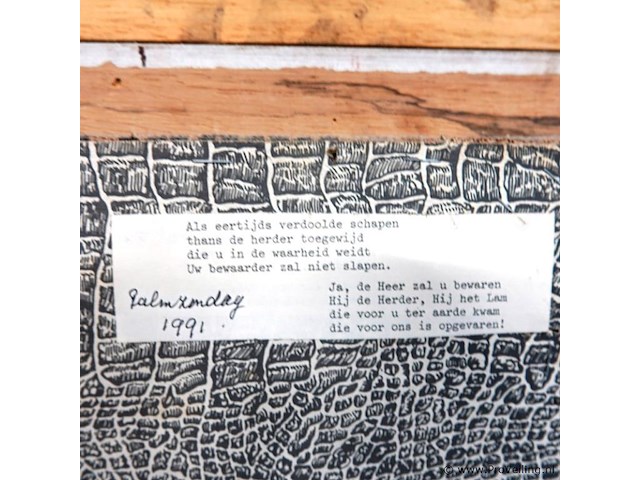 Als eertijds verdoolde schapen
thans de herder toegewijd
die u in de waarheid weidt
Uw bewaarder zal niet slapen.
Ja, de Heer zal u bewaren
Hij de Herder, Hij het Lam
die voor u ter aarde kwam
die voor ons is opgevaren!
Palmzondag
1991.
(c) www.ProVeiling.nl